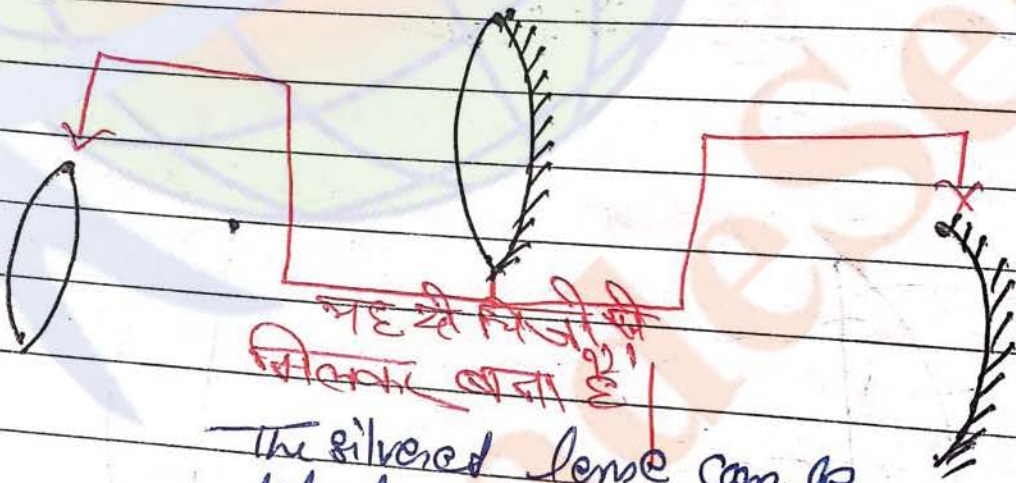 यह दो चिजो से
मिलकर बना है।
The silvered lense can be